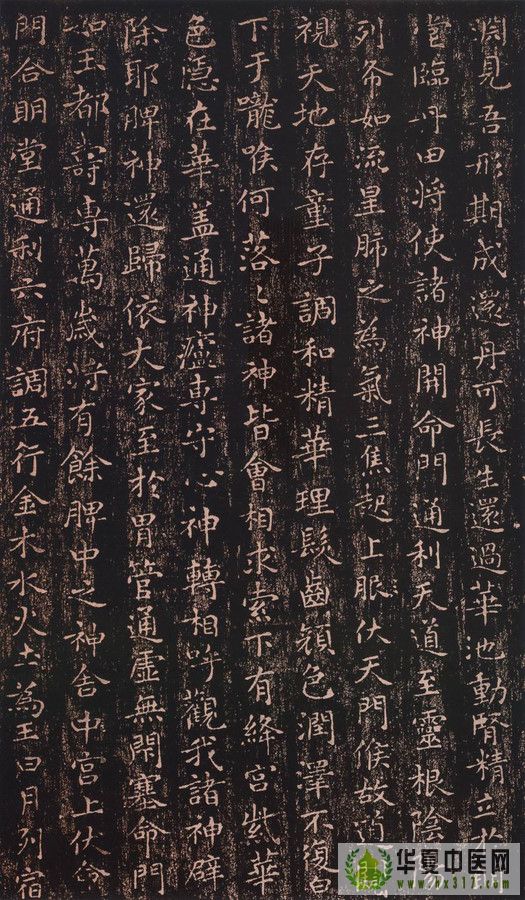 淵見吾形期成還丹可長生還過華池動腎精立於明
堂臨丹田將使諸神開命門通利天道至靈根陰陽
列布如流星肺之為氣三焦起上服伏天門候故道
視天地存童子調和精華理髮齒顏色潤澤不復白
下于嚨喉何落々諸神皆會相求索下有絳宮紫華
色隱在華蓋通神廬專守心神轉相呼觀我諸神辟
除耶脾神還歸依大家至於胃管通虛無閇塞命門
如玉都壽專萬歲將有餘脾中之神舍中宮上伏命
門合明堂通利六府調五行金木水火土為王日月列宿
华夏中医网